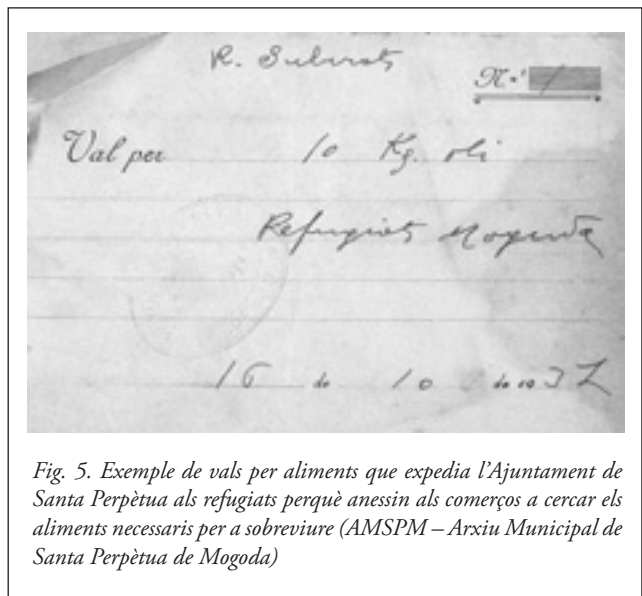 R. Subirats
N.º 1
Val per 10 Kg. oli
Refugiats Mogoda
16 de 10 de 193 7
Fig. 5. Exemple de vals per aliments que expedia l’Ajuntament de
Santa Perpètua als refugiats perquè anessin als comerços a cercar els
aliments necessaris per a sobreviure (AMSPM – Arxiu Municipal de
Santa Perpètua de Mogoda)